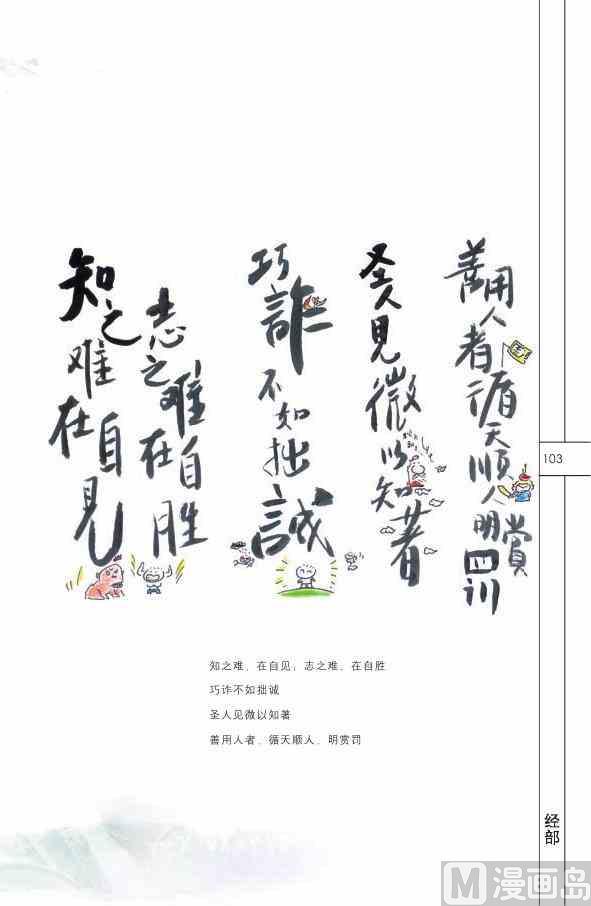 知之难在自見
志之难在自胜
巧詐不如拙誠
圣人見微以知著
善用人者循天順人明賞罰
103
知之难、在自见；志之难、在自胜
巧诈不如拙诚
圣人见微以知著
善用人者、循天顺人、明赏罚
经部
M漫画岛